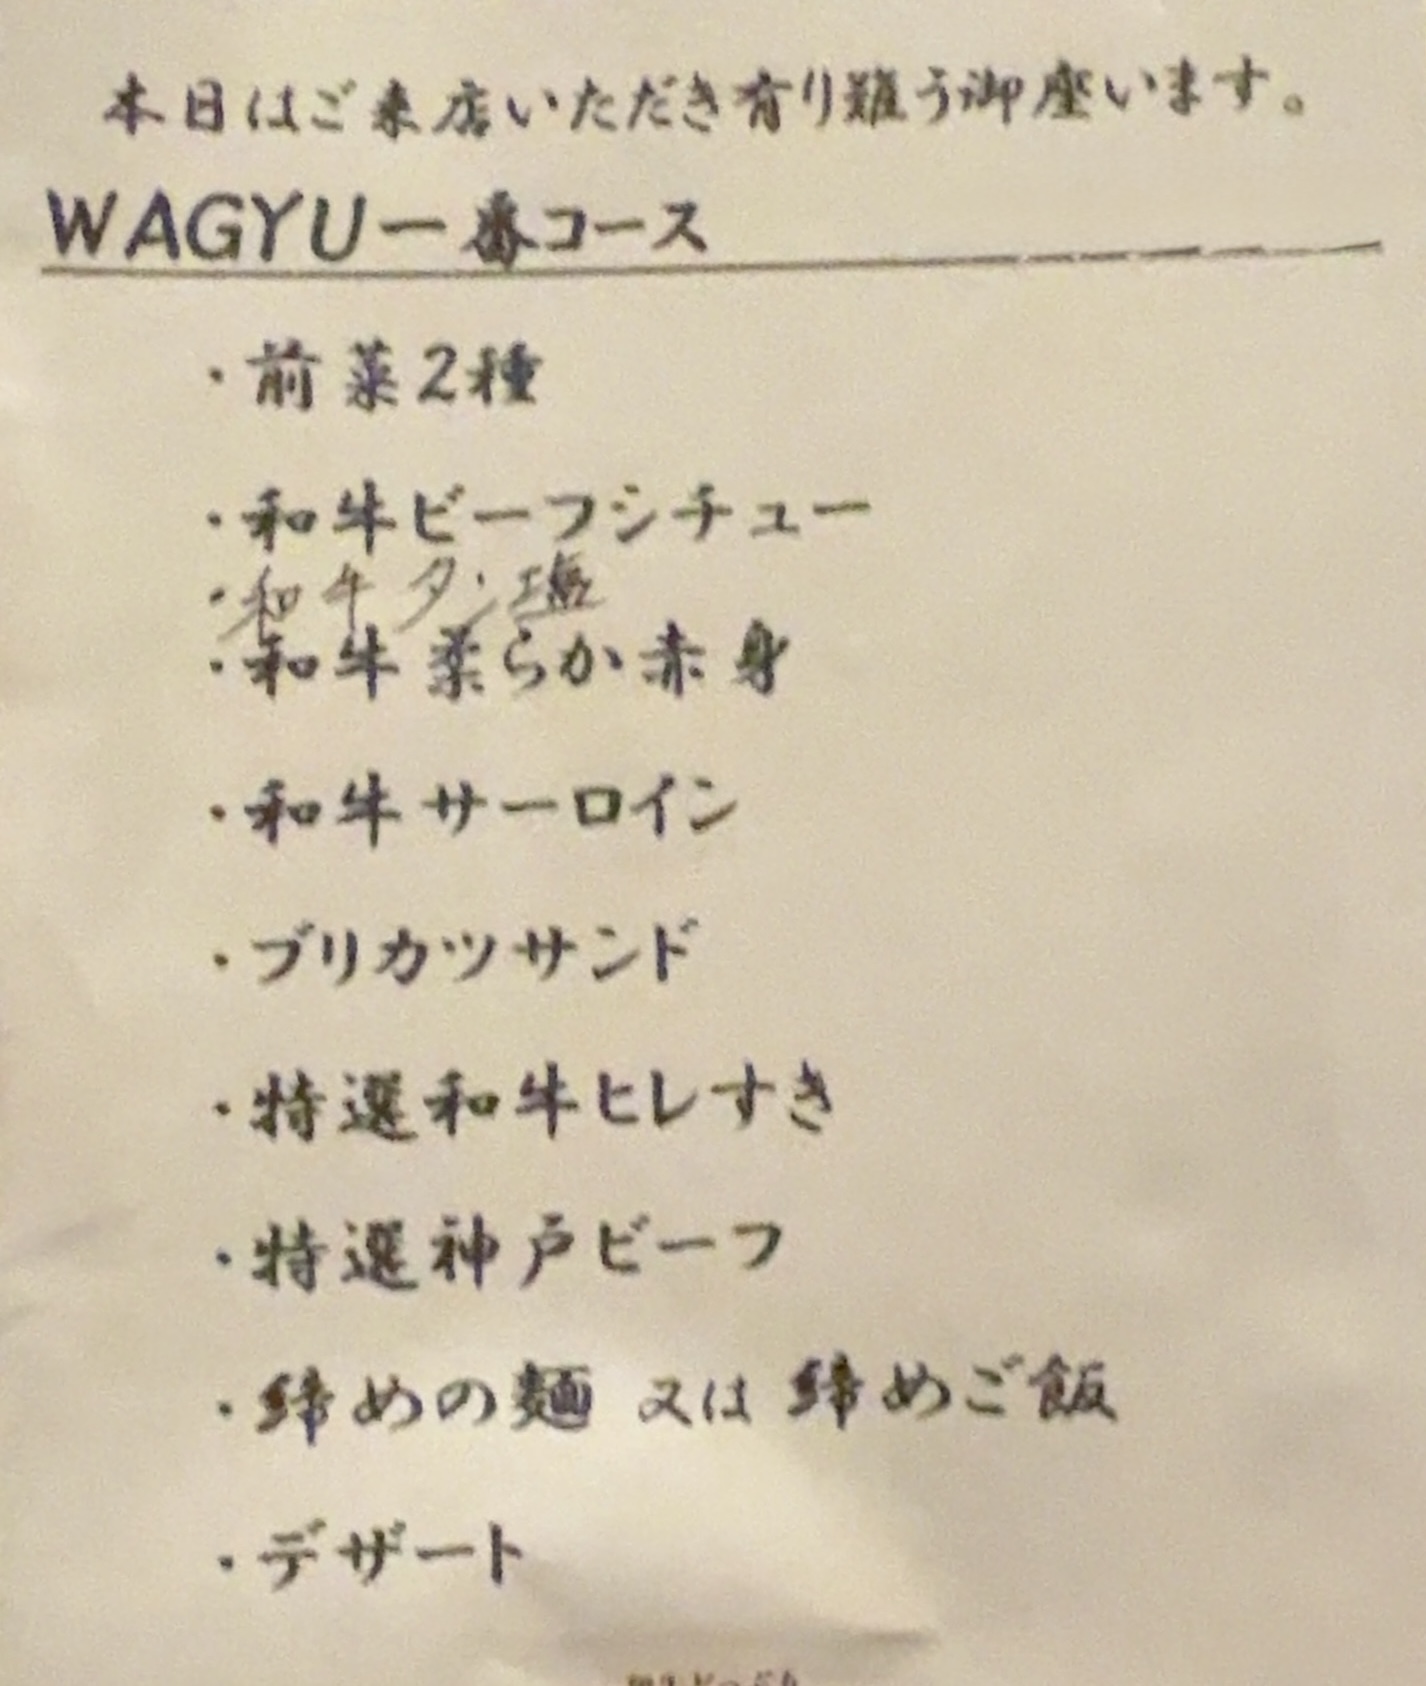 本日はご来店いただき有り難う御座います。
WAGYU一番コース
・前菜2種
・和牛ビーフシチュー
・和牛タン塩
・和牛柔らか赤身
・和牛サーロイン
・ブリカツサンド
・特選和牛ヒレすき
・特選神戸ビーフ
・締めの麺 又は 締めご飯
・デザート